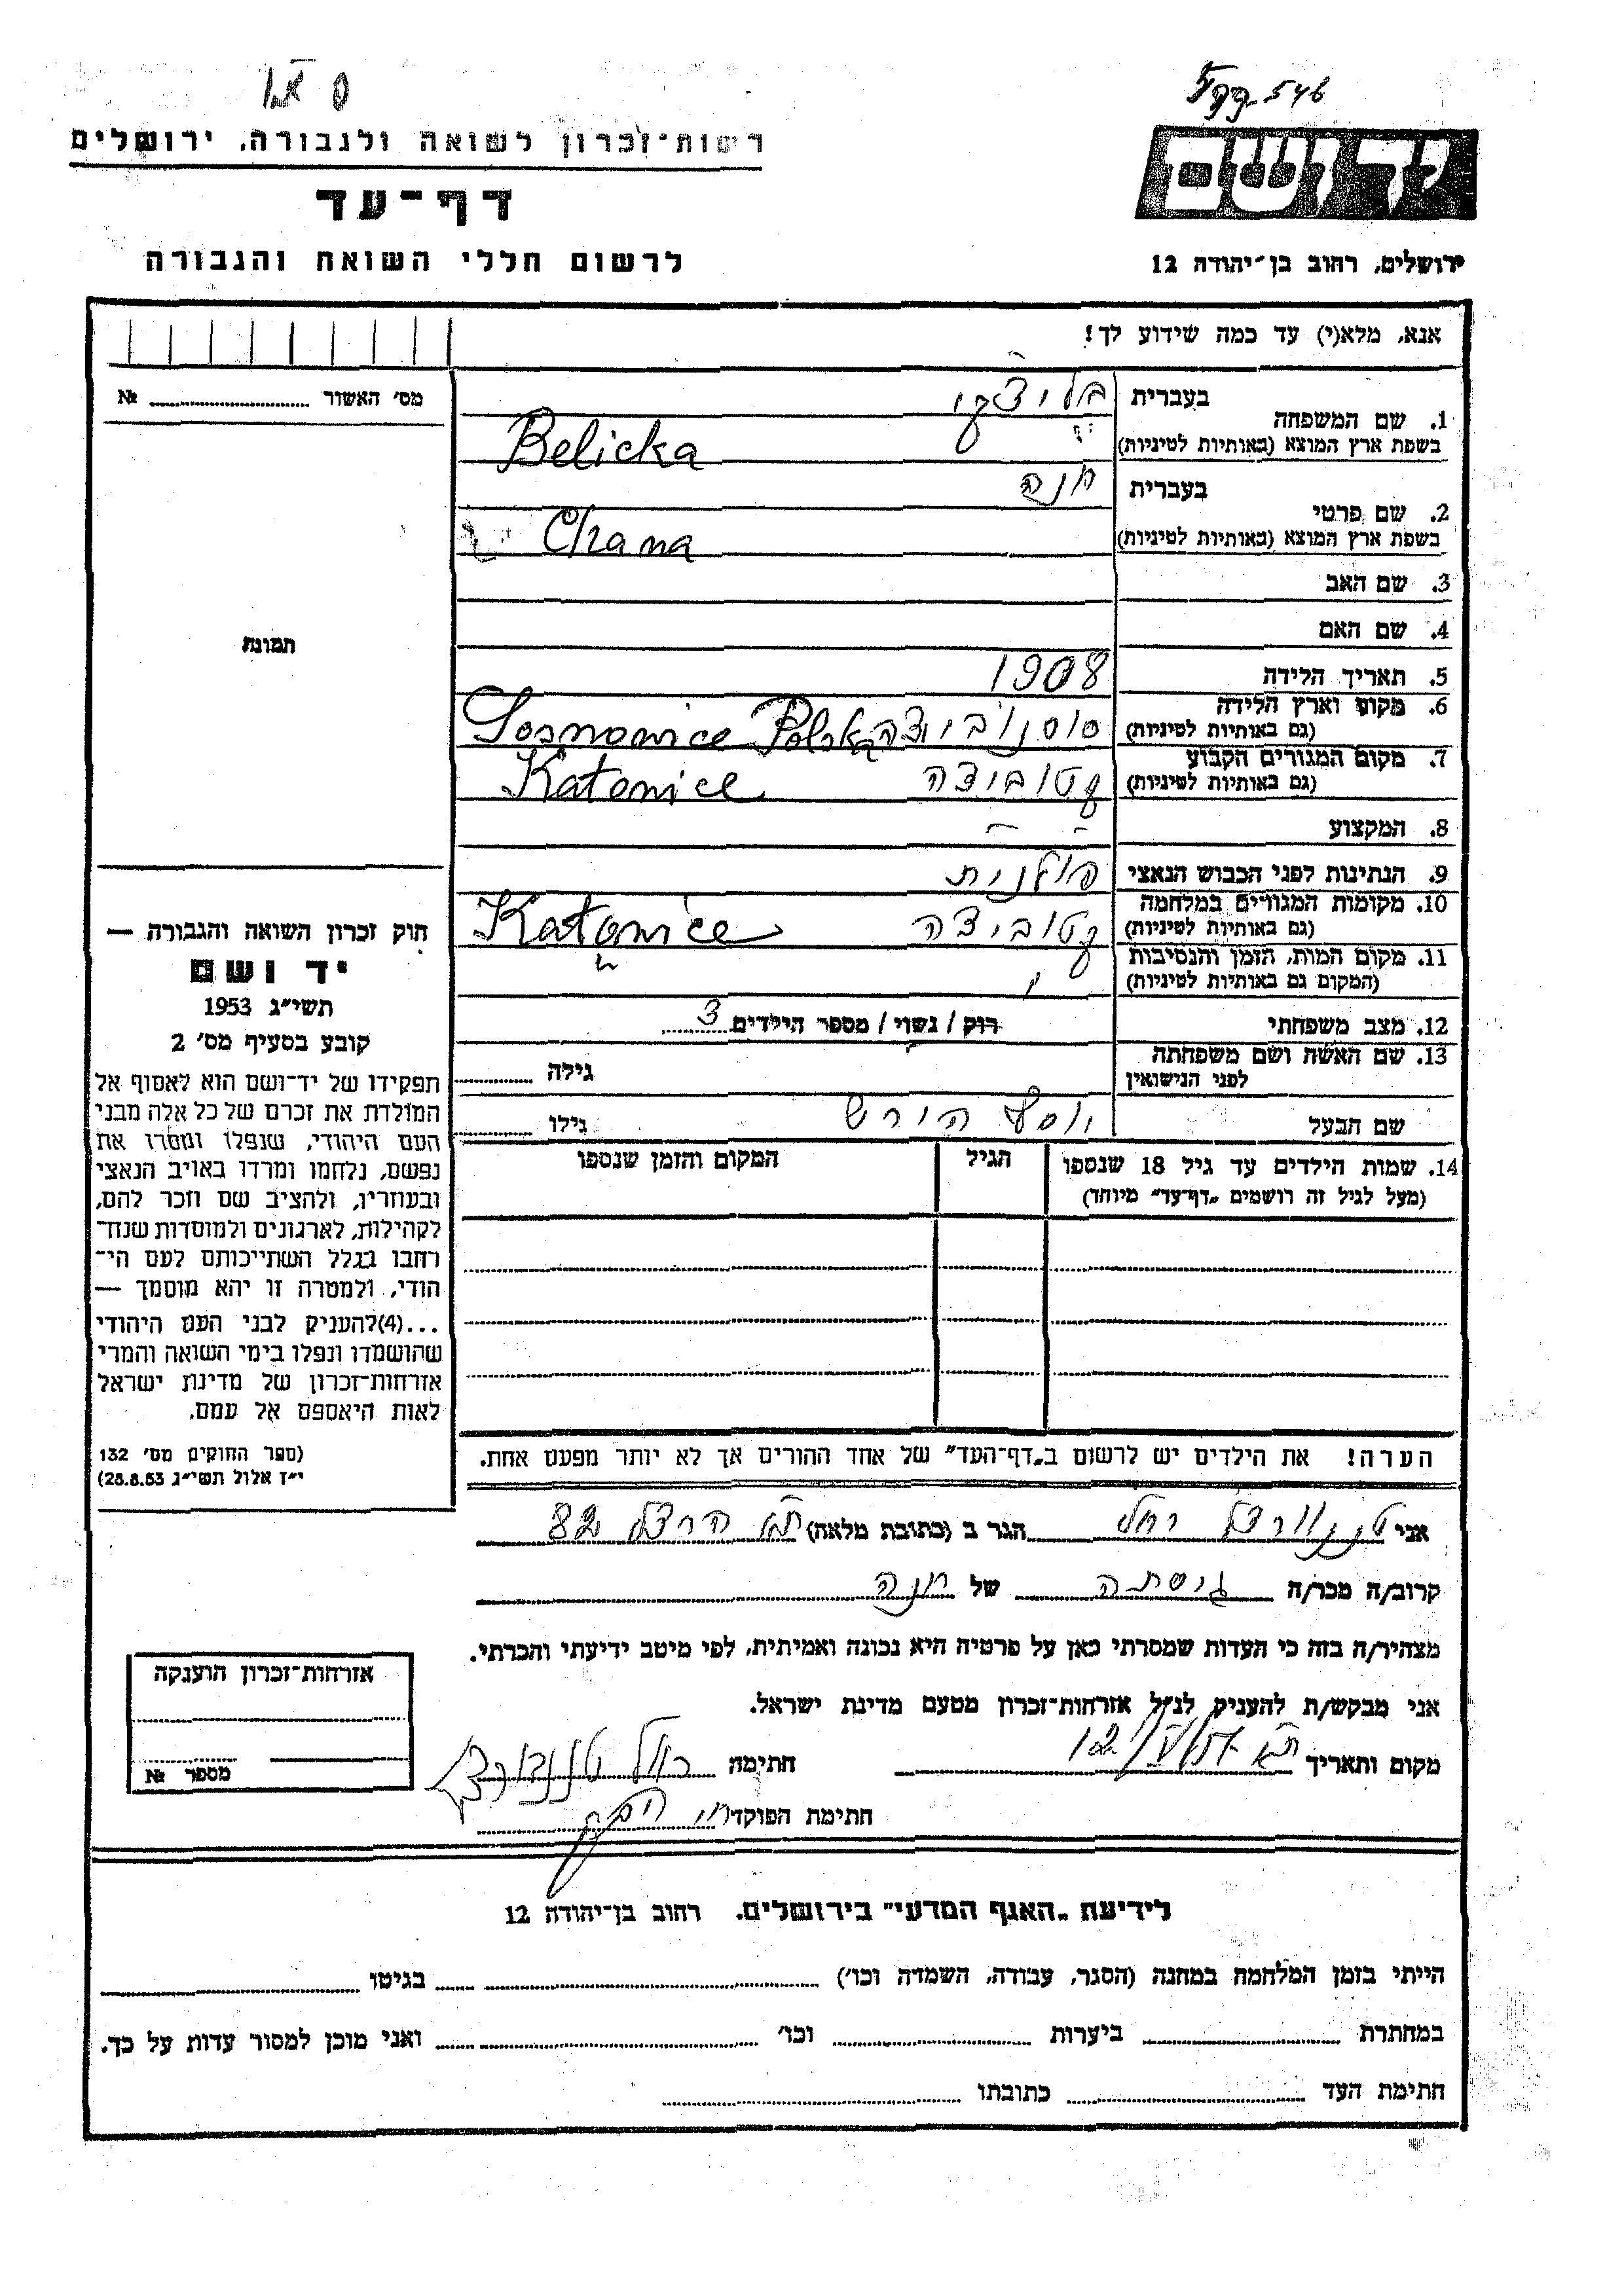 546
רשות-זכרון לשואה ולגבורה, ירושלים
יד ושם
דף-עד
לרשום חללי השואה והגבורה
ירושלים, רחוב בן-יהודה 12
אנא, מלא(י) עד כמה שידוע לך!
מס׳ האשור № 
1. שם המשפחה בעברית בליצקי
בשפת ארץ המוצא (באותיות לטיניות) Belicka
2. שם פרטי בעברית חנה
בשפת ארץ המוצא (באותיות לטיניות) Chana
3. שם האב
4. שם האם
תמונה
5. תאריך הלידה 1908
6. מקום וארץ הלידה (גם באותיות לטיניות) סוסנוביצה Sosnowice Polska
7. מקום המגורים הקבוע (גם באותיות לטיניות) קטוביצה Katowice
8. המקצוע
9. הנתינות לפני הכבוש הנאצי פולנית
10. מקומות המגורים במלחמה (גם באותיות לטיניות) קטוביצה Katowice
11. מקום המות, הזמן והנסיבות (המקום גם באותיות לטיניות)
12. מצב משפחתי רוק / נשוי / מספר הילדים 3
13. שם האשה ושם משפחתה לפני הנישואין גילה
שם הבעל יוסף הירש גילו
14. שמות הילדים עד גיל 18 שנספו הגיל המקום והזמן שנספו
(מעל לגיל זה רושמים „דף-עד״ מיוחד)
חוק זכרון השואה והגבורה —
יד ושם
תשי״ג 1953
קובע בסעיף מס׳ 2
תפקידו של יד-ושם הוא לאסוף אל
המולדת את זכרם של כל אלה מבני
העם היהודי, שנפלו ומסרו את
נפשם, נלחמו ומרדו באויב הנאצי
ובעוזריו, ולהציב שם וזכר להם,
לקהילות, לארגונים ולמוסדות שנח-
רבו בגלל השתייכותם לעם הי-
הודי, ולמטרה זו יהא מוסמך —
...(4) להעניק לבני העם היהודי
שהושמדו ונפלו בימי השואה והמרי
אזרחות-זכרון של מדינת ישראל
לאות היאספם אל עמם.
(ספר החוקים מס׳ 132
י״ז אלול תשי״ג 28.8.53)
הערה! את הילדים יש לרשום ב„דף-העד״ של אחד ההורים אך לא יותר מפעם אחת.
אני רחל הגר ב (כתובת מלאה) ת״א הרצל 82
קרוב/ה מכר/ה גיסתה של חנה
מצהיר/ה בזה כי העדות שמסרתי כאן על פרטיה היא נכונה ואמיתית, לפי מיטב ידיעתי והכרתי.
אני מבקש/ת להעניק לנ״ל אזרחות-זכרון מטעם מדינת ישראל.
מקום ותאריך ת״א חתימה רחל
חתימת הפוקד
אזרחות-זכרון הוענקה
מספר №
לידיעת „האגף המדעי״ בירושלים. רחוב בן-יהודה 12
הייתי בזמן המלחמה במחנה (הסגר, עבודה, השמדה וכו׳) בגיטו
במחתרת ביערות וכו׳ ואני מוכן למסור עדות על כך.
חתימת העד כתובתו